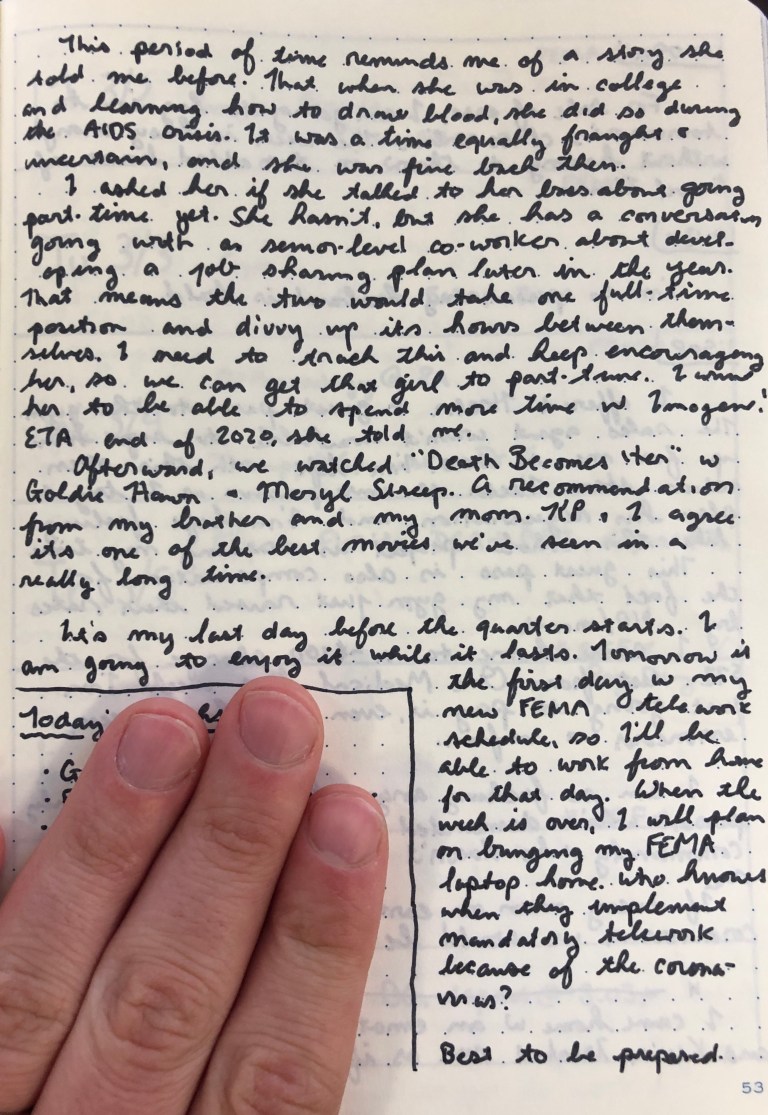 This period of time reminds me of a story she
told me before. That when she was in college
and learning how to draw blood, she did so during
the AIDS crisis. It was a time equally fraught &
uncertain, and she was fine back then.
I asked her if she talked to her boss about going
part-time yet. She hasn't, but she has a conversation
going with a senior-level co-worker about devel-
oping a job sharing plan later in the year.
That means the two would take one full-time
position and divvy up its hours between them-
selves. I need to track this and keep encouraging
her, so we can get that girl to part-time. I want
her to be able to spend more time w Imogene!
ETA end of 2020, she told me.
Afterward, we watched "Death Becomes Her" w
Goldie Hawn & Meryl Streep. A recommendation
from my brother and my mom. KP & I agree
it's one of the best movies we've seen in a
really long time.
It's my last day before the quarter starts. I
am going to enjoy it while it lasts. Tomorrow is
the first day w my
new FEMA telework
schedule, so I'll be
able to work from home
for that day. When the
week is over, I will plan
on bringing my FEMA
laptop home. Who knows
when they implement
mandatory telework
because of the corona-
virus?
Best to be prepared.
Today
53